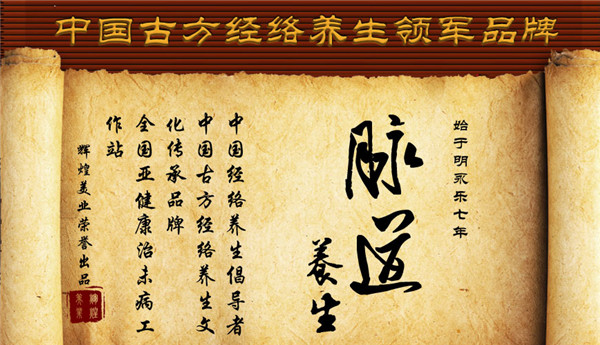 中国古方经络养生领军品牌
始于明永乐七年
脉道
養生
中国经络养生倡导者
中国古方经络养生文
化传承品牌
全国亚健康治未病工
作站
辉煌美业荣誉出品
辉煌
美业